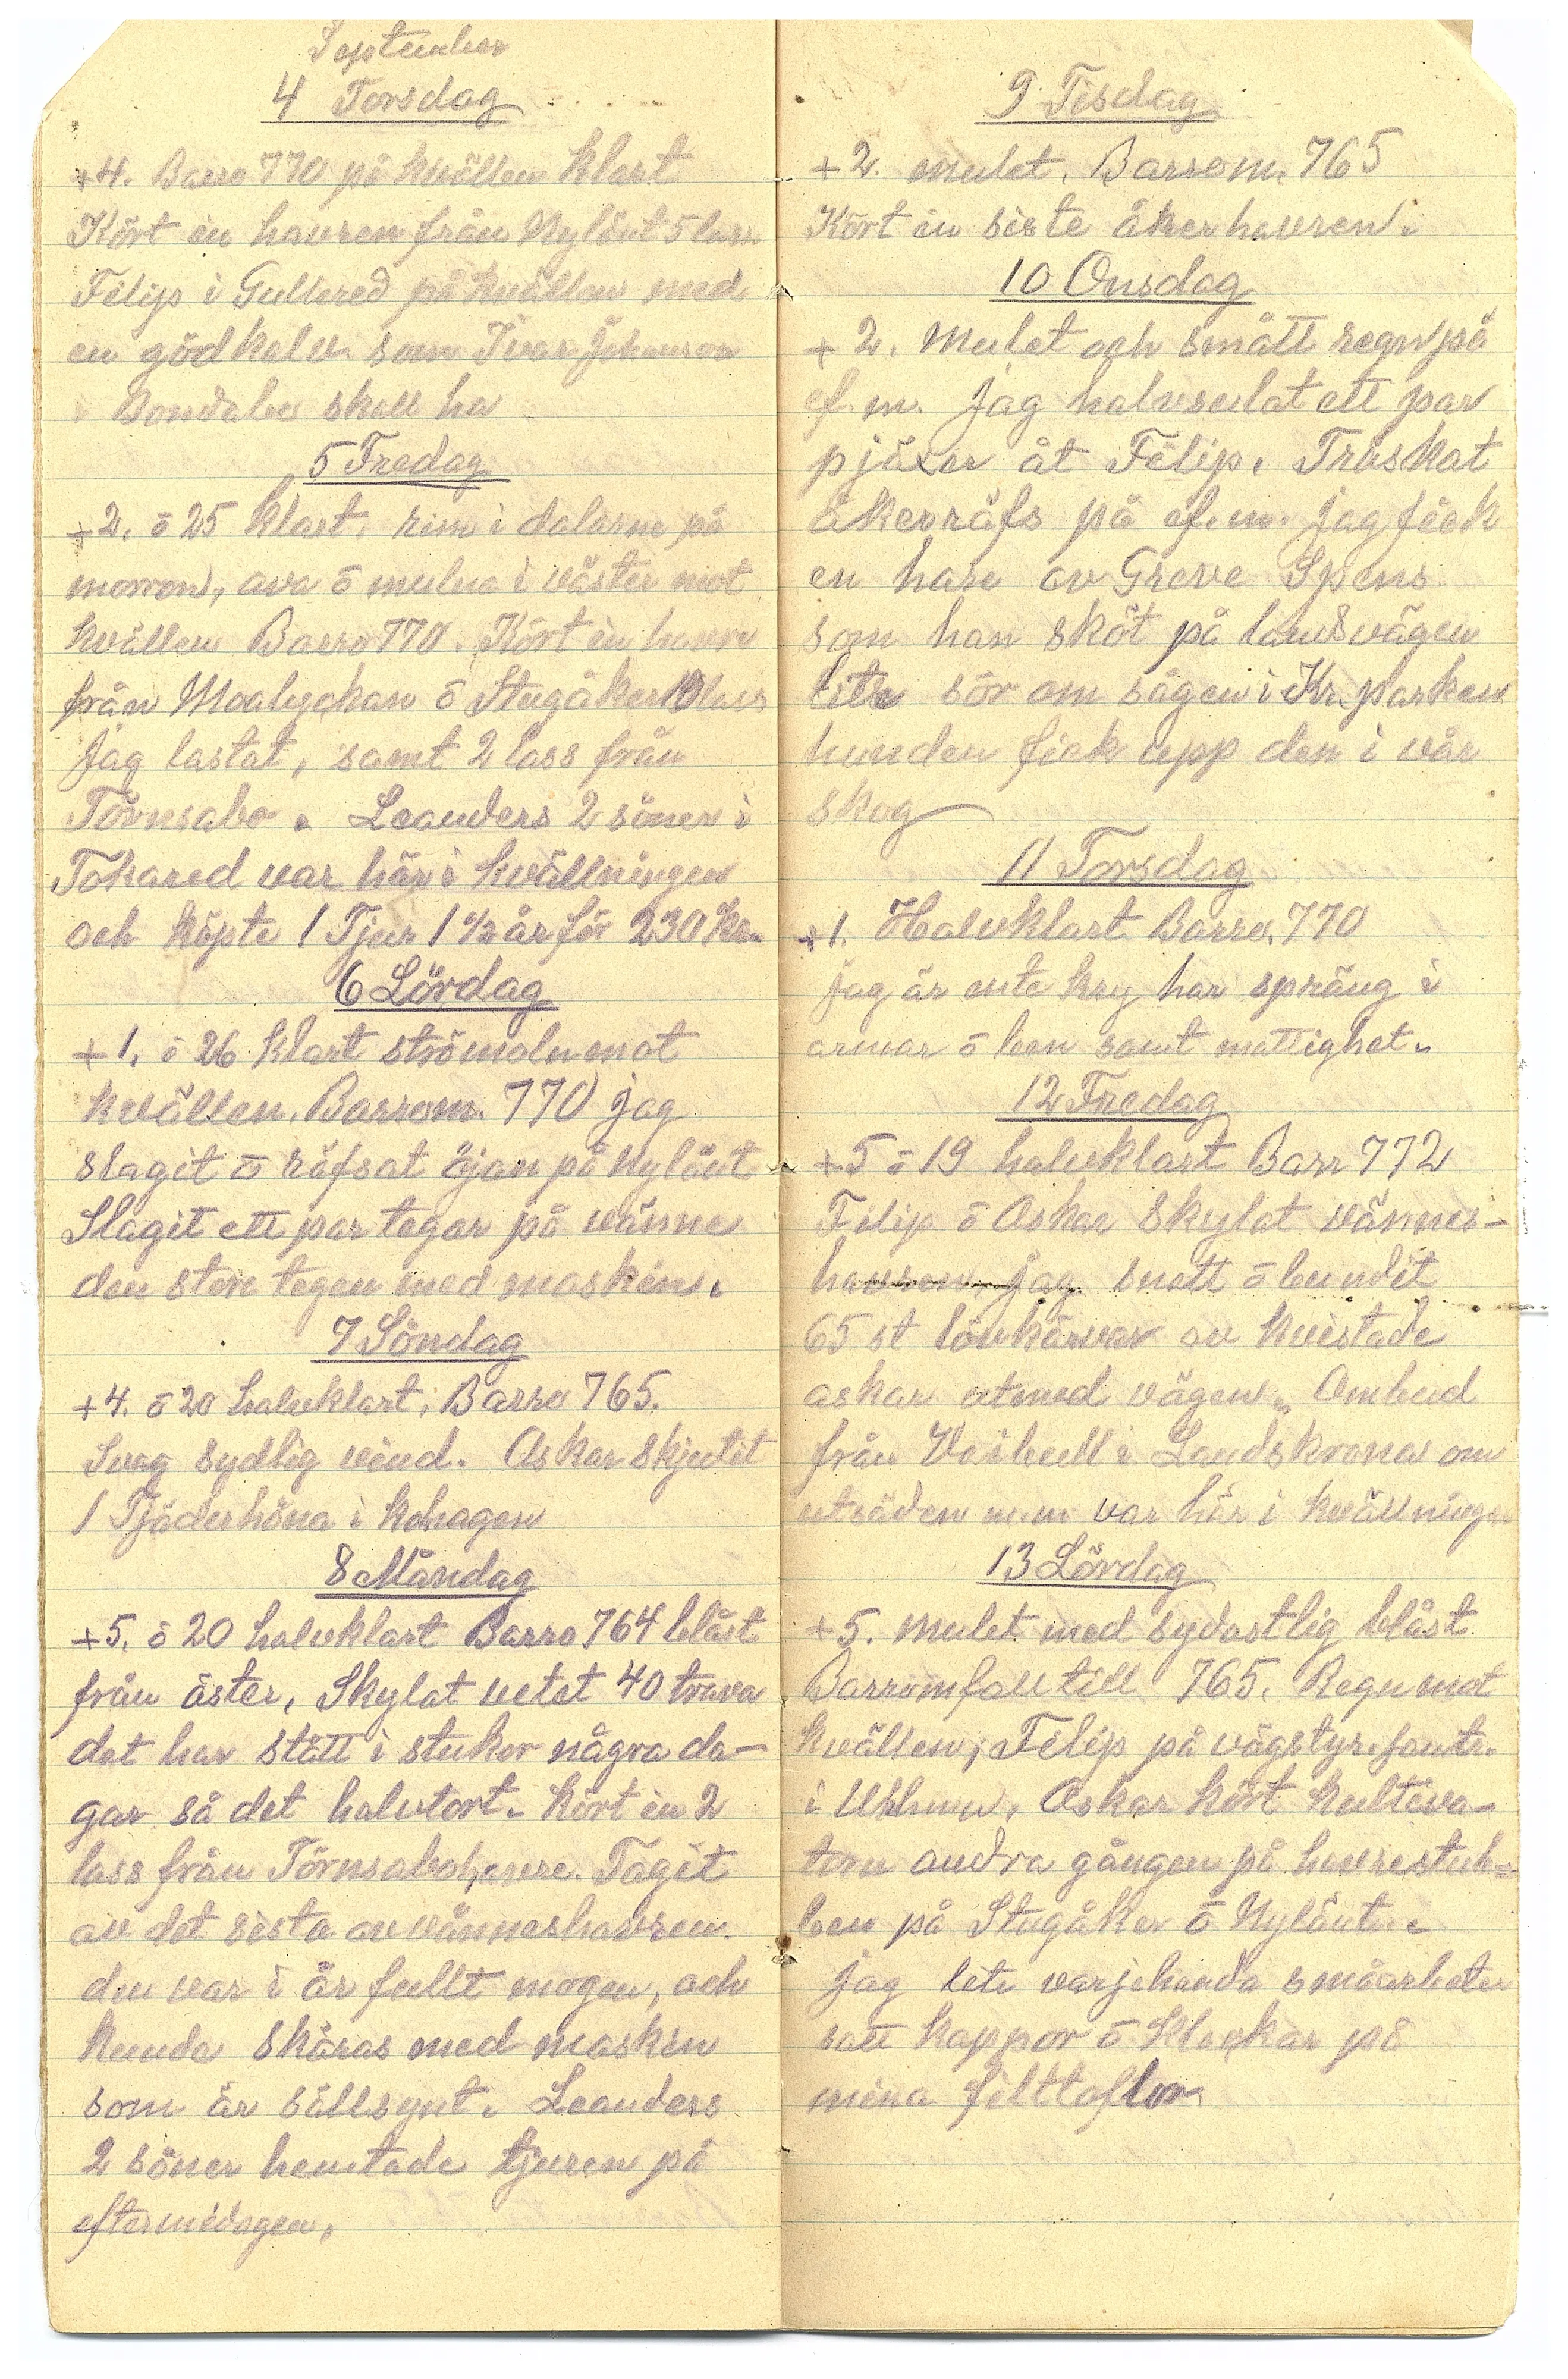 September
4 Torsdag
+4. Barro 770 på kvällen klart
Kört in havren från Nylönt 5 lass.
Filip i Gullered på kvällen med
en gödkalv som Ivar Johanson
i Bondabo skall ha
5 Fredag
+2. ō 25 klart. rim i dalarne på
morron, ava ō mulna i väster mot
kvällen Barro 770. Kört in havre
från Moalyckan ō Stugåker 10 lass
jag lastat, samt 2 lass från
Törnsabo. Leanders 2 söner i
Tokared var här i kvällningen
och köpte 1 Tjur 1 1/2 år för 230 kr.
6 Lördag
+1. ō 26 klart strömoln mot
kvällen. Barrom. 770 jag
slagit ō räfsat öjan på Nylönt
Slagit ett par tegar på vänne
den store tegen med maskin.
7 Söndag
+4. ō 20 halvklart, Barro 765.
Svag sydlig vind. Oskar skjutit
1 Tjäderhöna i kohagen
8 Måndag
+5. ō 20 halvklart Barro 764 blåst
från öster. Skylat vetet 40 trava
det har stått i stukor några da-
gar så det halvtort. Kört in 2
lass från Törnsabohavre. Tagit
av det sista av vänneshavren
den var i år fullt mogen, och
kunde skäras med maskin
som är sällsynt. Leanders
2 söner hemtade tjuren på
eftermidagen.
9 Tisdag
+2. mulet. Barrom. 765
Kört in siste åkerhavren.
10 Onsdag
+2. Mulet och smått regn på
ef.m. Jag halvsulat ett par
pjäxer åt Filip. Tröskat
åkerräfs på ef.m. jag fick
en hare av Greve Spens
som han sköt på landsvägen
lite sör om sågen i Kr. parken
hunden fick upp den i vår
skog
11 Torsdag
+1. Halvklart Barro. 770
jag är inte kry har spräng i
armar ō ben samt mattighet.
12 Fredag
+5 ō 19 halvklart Barr 772
Filip ō Oskar skylat vännes-
havren jag snott ō bundit
65 st lövkärvar av kvistade
askar utmed vägen. Ombud
från Weibull i Landskrona om
utsäden m.m var här i kvällningen
13 Lördag
+5. Mulet med sydostlig blåst
Barromfall till 765. Regn mot
kvällen, Filip på vägstyr.samtr.
i Ulhmn. Oskar kört kultiva-
torn andra gången på havrestub-
ben på Stugåker ō Nylönt.
jag lite varjehanda småarbeten
satt kappor ō klackar på
mina filttoflor